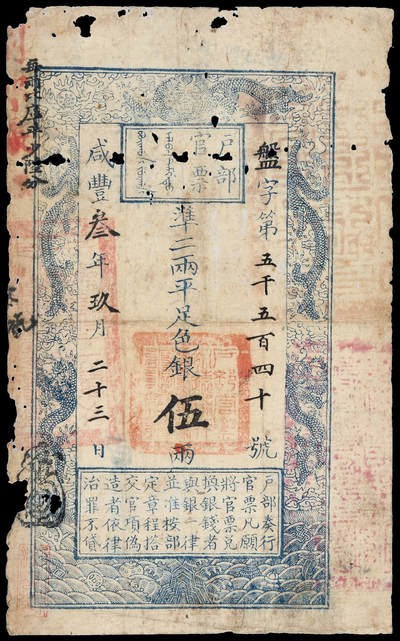 戶部
官票
盤字第五千五百四十號
準二兩平足色銀伍兩
咸豐叁年玖月二十三日
戶部奏行
官票凡願
將官票兌
換銀錢者
與銀一律
並准按部
定章程搭
交官項偽
造者依律
治罪不貸